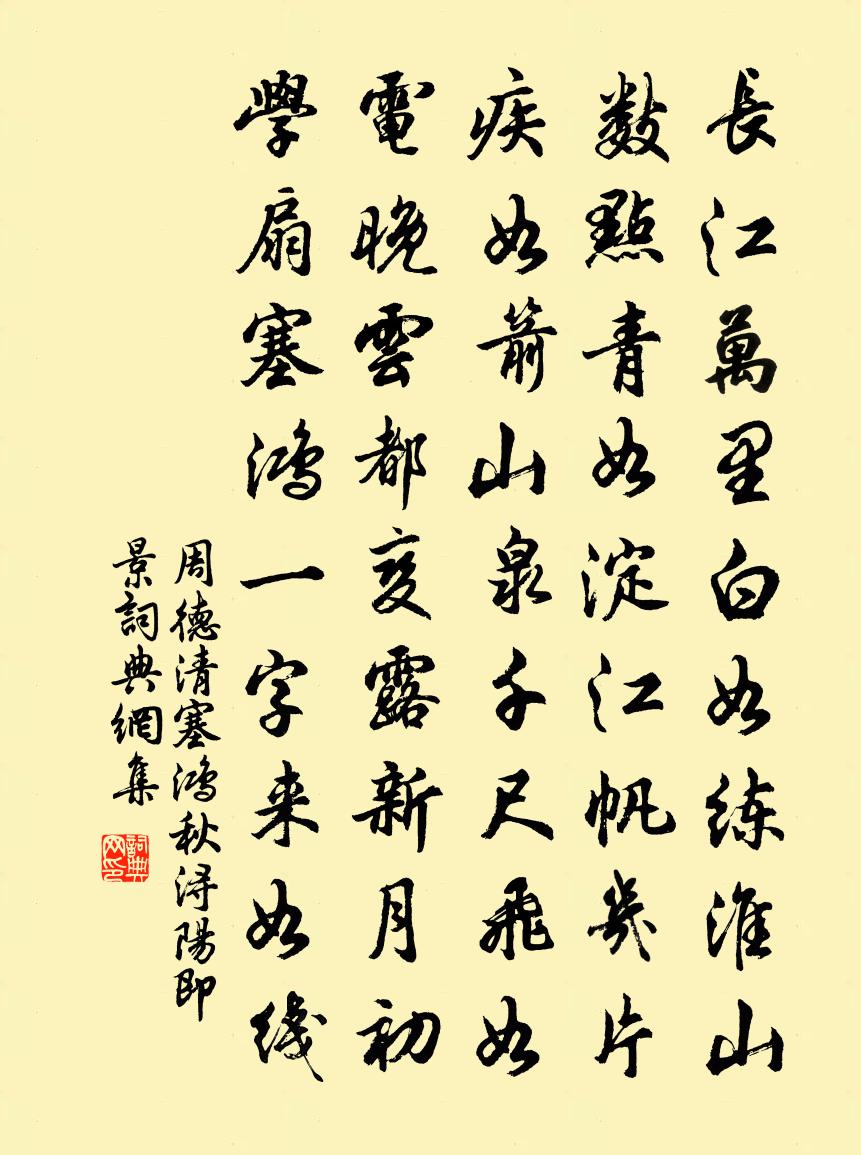 長江萬里白如练淮山
數點青如淀江帆幾片
疾如箭山泉千尺飛如
電晚雲都变露新月初
學扇塞鴻一字来如綫
周德清塞鴻秋浔陽即
景詞典網集
詞典网印